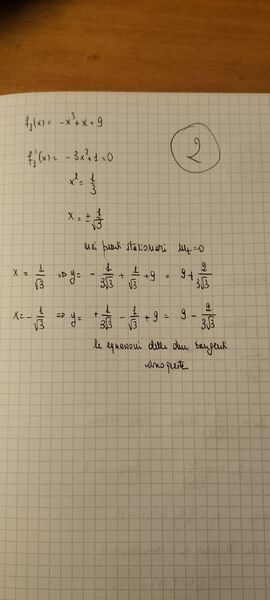 f₁(x) = -x³ + x + 9
2
f₁'(x) = -3x² + 1 = 0
x² = 1/3
x = ± 1/√3
nei punti stazionari m_t = 0
x = 1/√3 ⇒ y = - 1/3√3 + 1/√3 + 9 = 9 + 2/3√3
x = - 1/√3 ⇒ y = + 1/3√3 - 1/√3 + 9 = 9 - 2/3√3
le equazioni delle due tangenti
sono queste